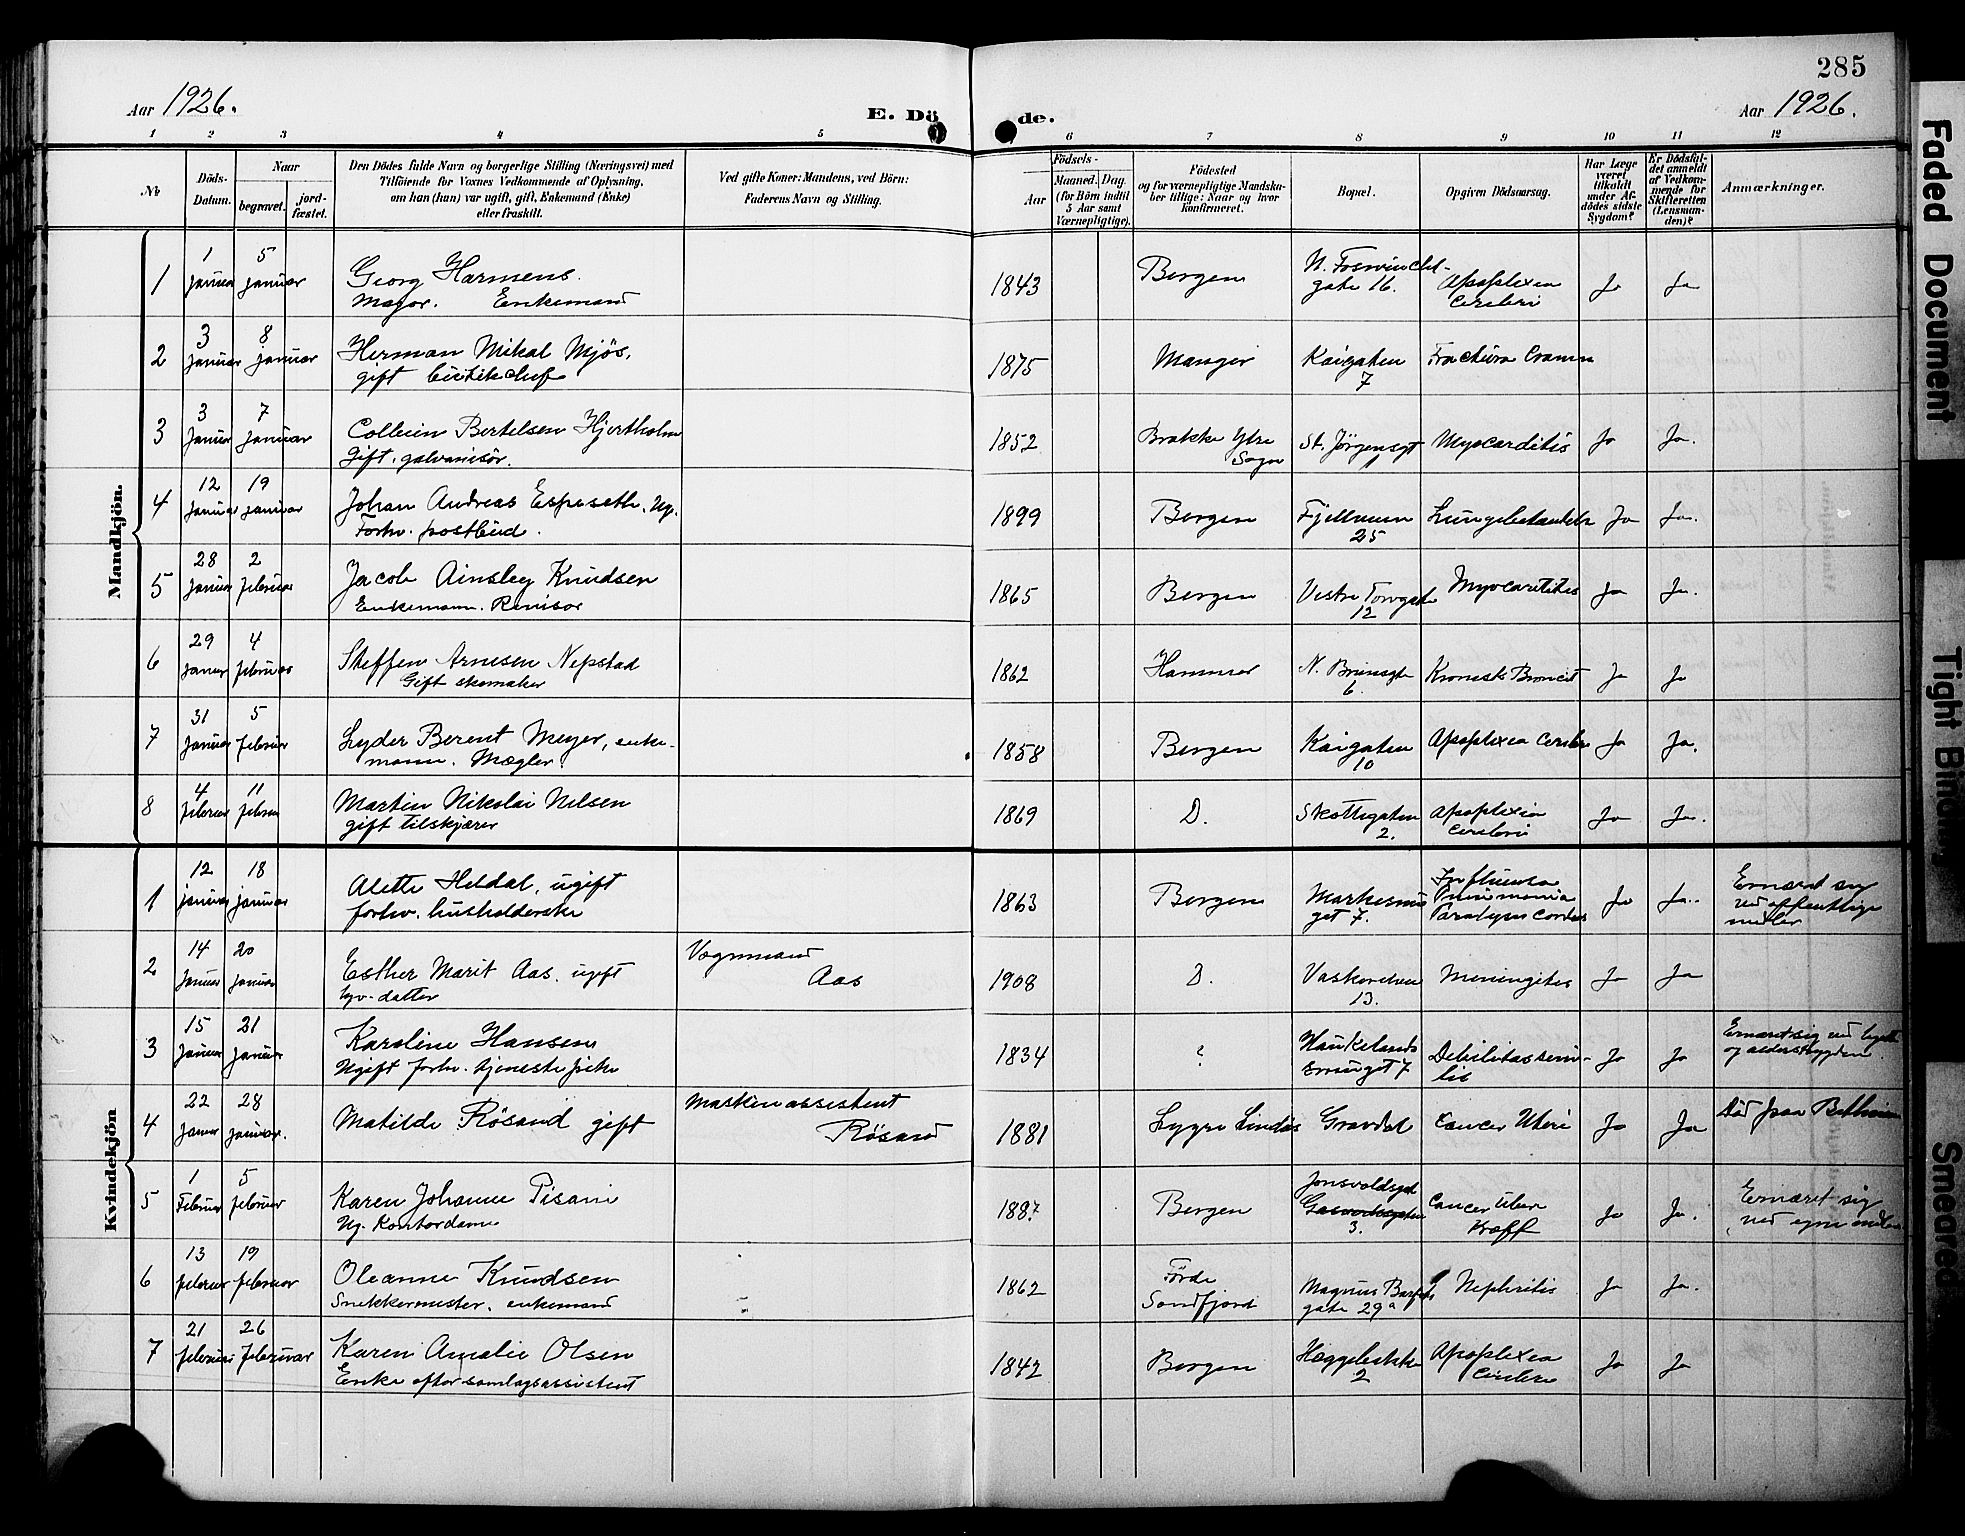 285
Aar 1926.
E. Dö de.
Aar 1926.
1 2 3 4 5 6 7 8 9 10 11 12
№
Döds-Datum.
Naar
begravet.
jord-fæstet.
Den Dödes fulde Navn og borgerlige Stilling (Næringsvei) med
Tilföiende for Voxnes Vedkommende af Oplysning,
om han (hun) var ugift, gift, Enkemand (Enke)
eller fraskilt.
Ved gifte Koner: Mandens, ved Börn:
Faderens Navn og Stilling.
Födsels-
Aar
Maaned. Dag
(for Börn indtil
5 Aar samt
Værnepligtige).
Födested
og for værnepligtige Mandska-
ber tillige: Naar og hvor
konfirmeret.
Bopæl.
Opgiven Dödsaarsag.
Har Læge
været
tilkaldt
under Af-
dödes sidste
Sygdom?
Er Dödsfal-
det anmeldt
af Vedkom-
mende for
Skifteretten
(Lensman-
den)?
Anmærkninger.
Mandkjön.
1 1 januar 5 januar Georg Harmens. Major. Enkemand 1843 Bergen gate 16. Apoplexia Cerebri Ja Ja
2 3 januar 8 januar Herman Mikal Mjös, gift 1875 Manger Kaigaten 7 Fractura Cranii
3 3 januar 7 januar Bertelsen Hjertholm Gift. galvanisör. 1852 Brekke Ytre Sogn St. Jörgensgt Myocarditis Ja Ja.
4 12 januar 19 januar Johan Andreas Espeseth, Ug. Forhv. postbud. 1899 Bergen Fjellveien 25 Ja Ja.
5 28 januar 2 februar Jacob Ainsley Knudsen Enkemann. Revisor 1865 Bergen Vestre Torvgate 12 Myocarditis Ja Ja.
6 29 januar 4 februar Steffen Arnesen Nepstad Gift skomaker 1862 Hammer 6. Kronisk Broncit Ja Ja
7 31 januar 5 februar Lyder Berent Meyer, enke-
mann. Mægler. 1858 Bergen Kaigaten 10 Apoplexia Cerebri Ja Ja.
8 4 februar 11 februar Martin Nikolai Nilsen gift tilskjærer 1869 D. Skottegaten 2. Apoplexia Cerebri Ja Ja.
Kvindekjön
1 12 januar 18 januar Alette Heldal, ugift forhv. husholderske 1863 Bergen Markeveien 7. Influensa Pneumonia Paralysis Cordis Ja Ja. Ernæret sig ved offentlige midler
2 14 januar 20 januar Esther Marit Aas. ugift datter Vognmand Aas 1908 D. 13. Meningitis Ja Ja
3 15 januar 21 januar Karoline Hansen Ugift forhv. tjenestepike 1834 ? Haukelands 7 Debilitas seni-
lis Ja Ja Ernæret sig ved
og alderstrygden
4 22 januar 28 januar. Matilde Rösand gift Maskinassistent Rösand 1881 Lygre Lindås Gravdal Cancer Uteri Ja Ja Död paa
5 1 Februar 5 februar Karen Johanne Pisani Ug. Kontordame 1887 Bergen 3. Cancer Ja Ja. Ernæret sig ved egne midler
6 13 februar 19 februar Oleanne Knudsen Snekkermester. enkemand 1862 Förde Sondfjord Magnus Barfots gate 29a Nephritis Ja Ja.
7 21 februar 26 februar Karen Amalie Olsen Enke efter samlagsassistent 1842 Bergen 2 Apoplexia Cerebri Ja Ja
Faded Document
Tight Binding
Smeared